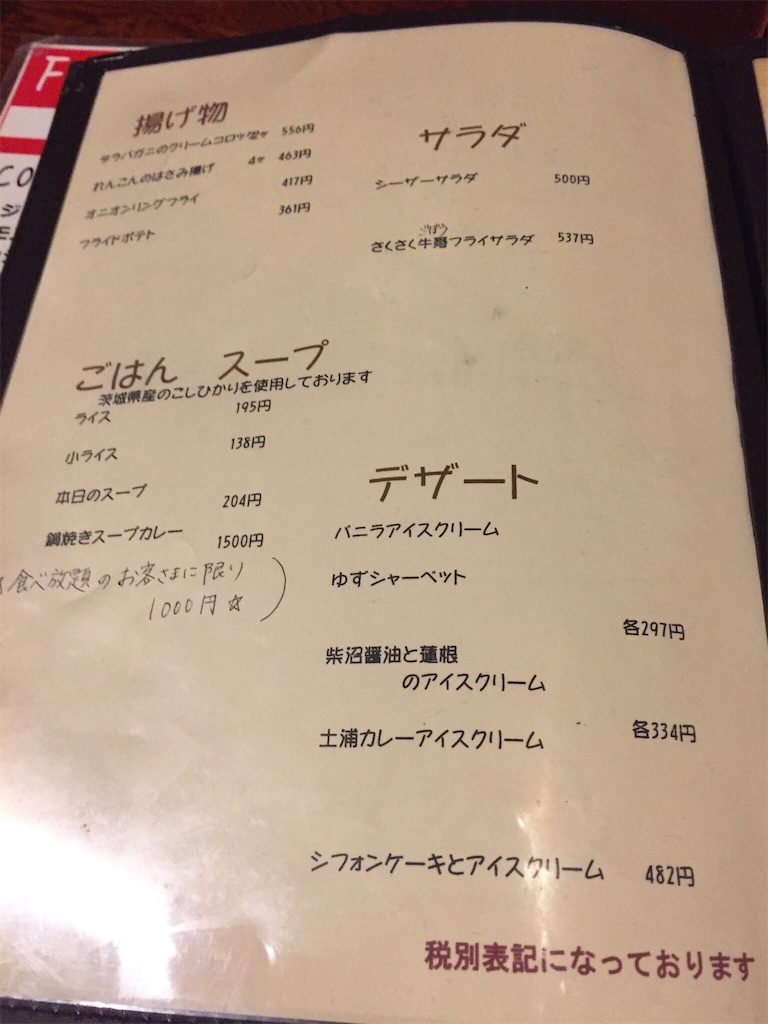 揚げ物
タラバガニのクリームコロッケ 2ヶ 556円
れんこんのはさみ揚げ 4ヶ 463円
オニオンリングフライ 417円
フライドポテト 361円
サラダ
シーザーサラダ 500円
ごぼう
さくさく牛蒡フライサラダ 537円
ごはん スープ
茨城県産のこしひかりを使用しております
ライス 195円
小ライス 138円
本日のスープ 204円
鍋焼きスープカレー 1500円
食べ放題のお客さまに限り
1000円☆)
デザート
バニラアイスクリーム
ゆずシャーベット
各297円
柴沼醤油と蓮根
のアイスクリーム
土浦カレーアイスクリーム
各334円
シフォンケーキとアイスクリーム 482円
税別表記になっております